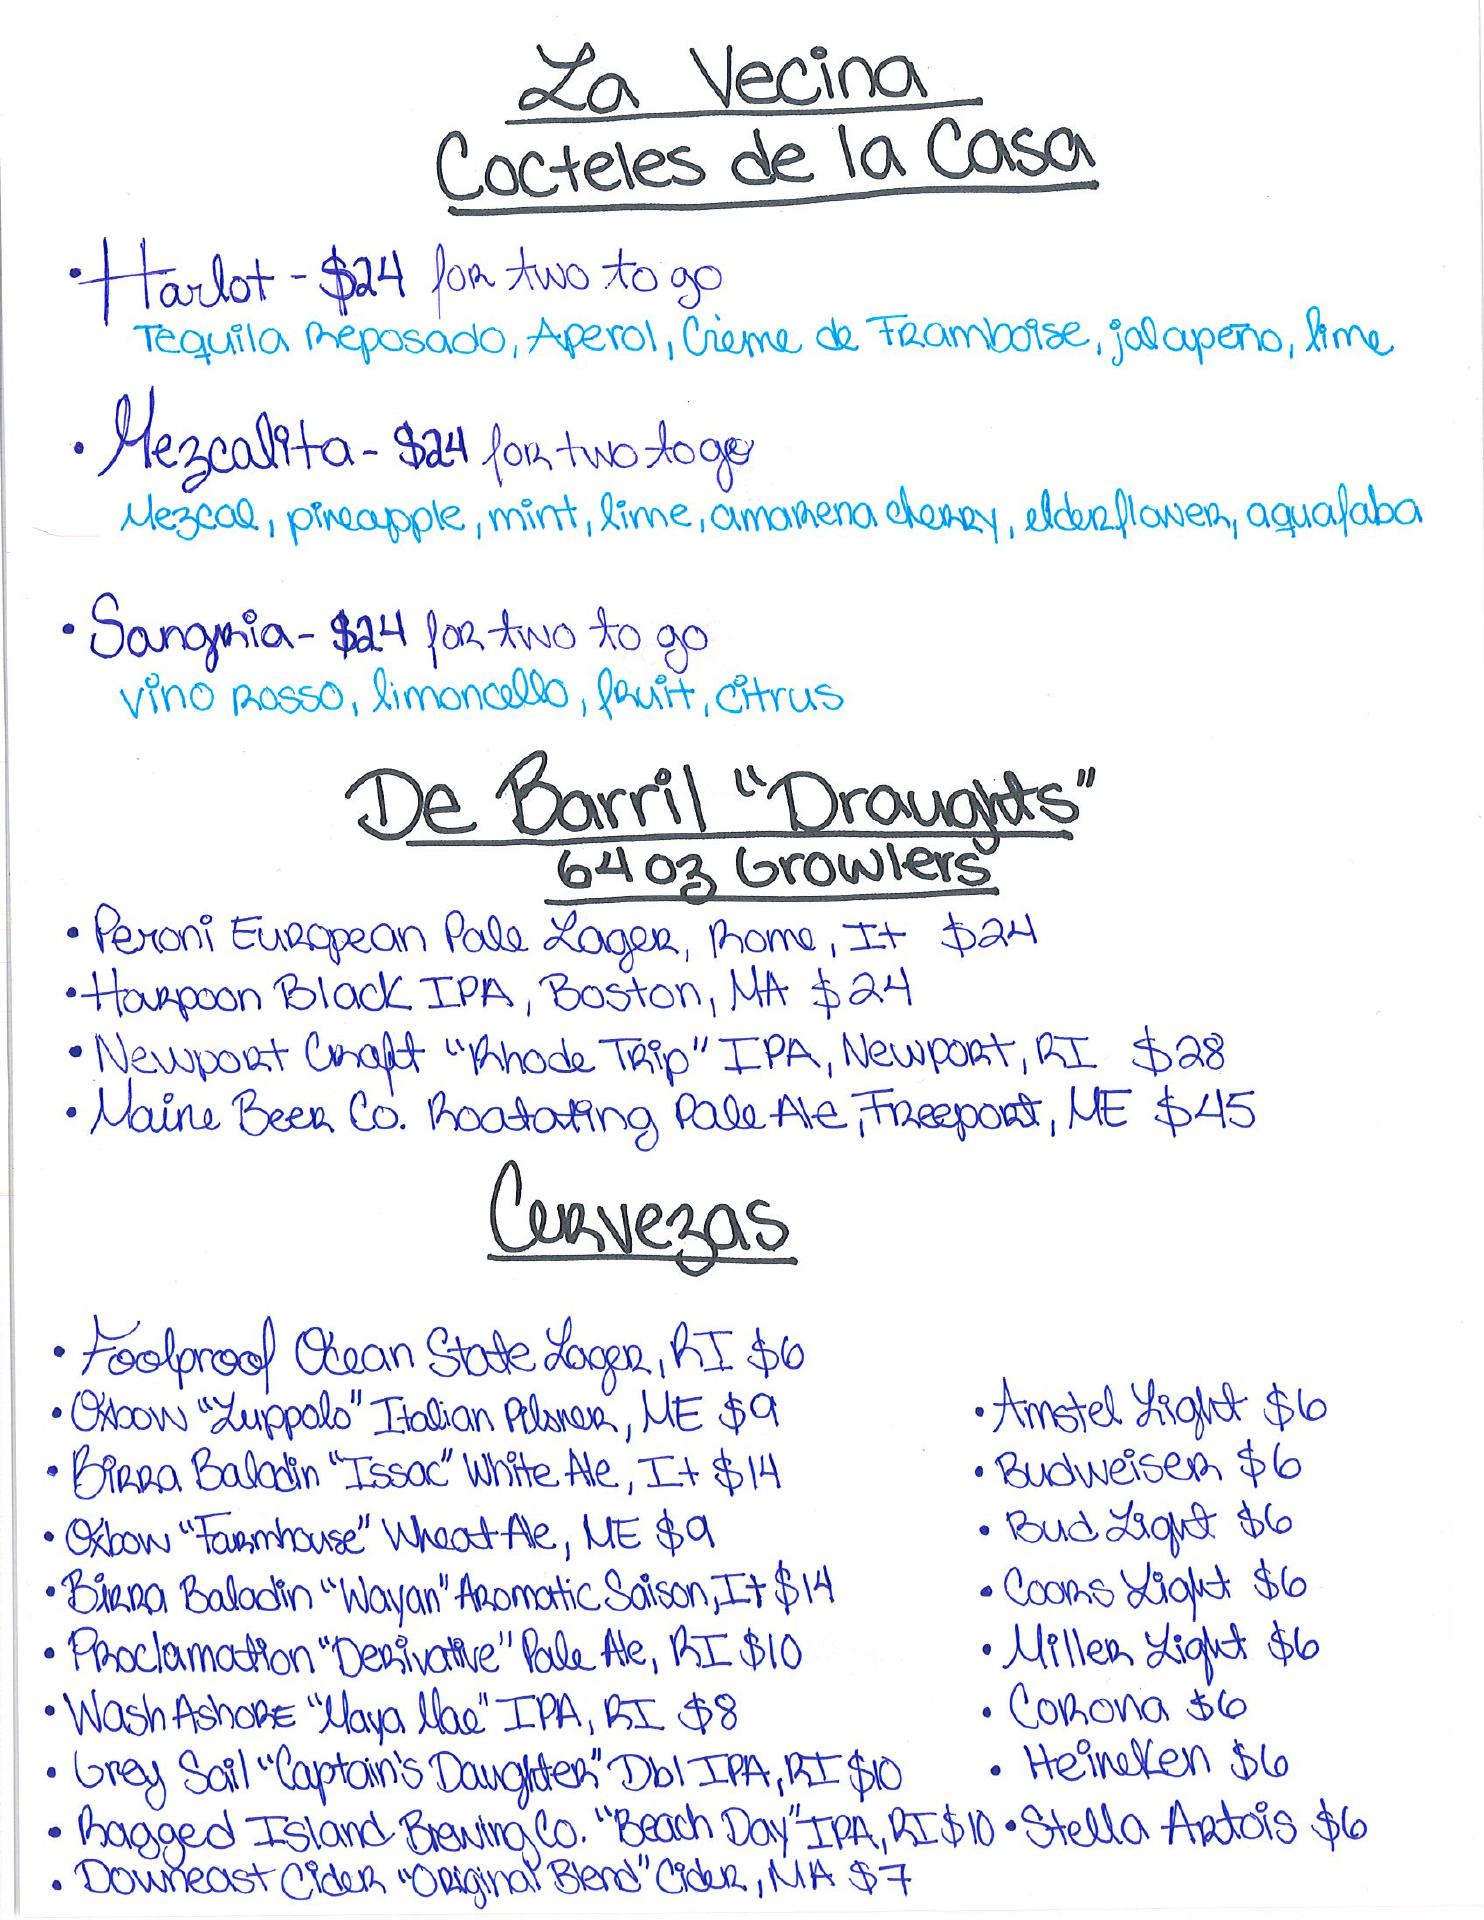 La Vecina
Cocteles de la Casa
• Harlot - $24 for two to go
Tequila Reposado, Aperol, Crème de Framboise, jalapeño, lime
• Mezcalita - $24 for two to go
Mezcal, pineapple, mint, lime, amarena cherry, elderflower, aquafaba
• Sangria - $24 for two to go
vino rosso, limoncello, fruit, citrus
De Barril "Draughts"
64 oz Growlers
• Peroni European Pale Lager, Rome, It $24
• Harpoon Black IPA, Boston, MA $24
• Newport Craft "Rhode Trip" IPA, Newport, RI $28
• Maine Beer Co. Rootating Pale Ale, Freeport, ME $45
Cervezas
• Foolproof Ocean State Lager, RI $6
• Oxbow "Luppolo" Italian Pilsner, ME $9
• Birra Baladin "Issac" White Ale, It $14
• Oxbow "Farmhouse" Wheat Ale, ME $9
• Birra Baladin "Wayan" Aromatic Saison, It $14
• Proclamation "Derivative" Pale Ale, RI $10
• Wash Ashore "Maya Mae" IPA, RI $8
• Grey Sail "Captain's Daughter" Dbl IPA, RI $10
• Ragged Island Brewing Co. "Beach Day" IPA, RI $10
• Downeast Cider "Original Blend" Cider, MA $7
• Amstel Light $6
• Budweiser $6
• Bud Light $6
• Coors Light $6
• Miller Light $6
• Corona $6
• Heineken $6
• Stella Artois $6